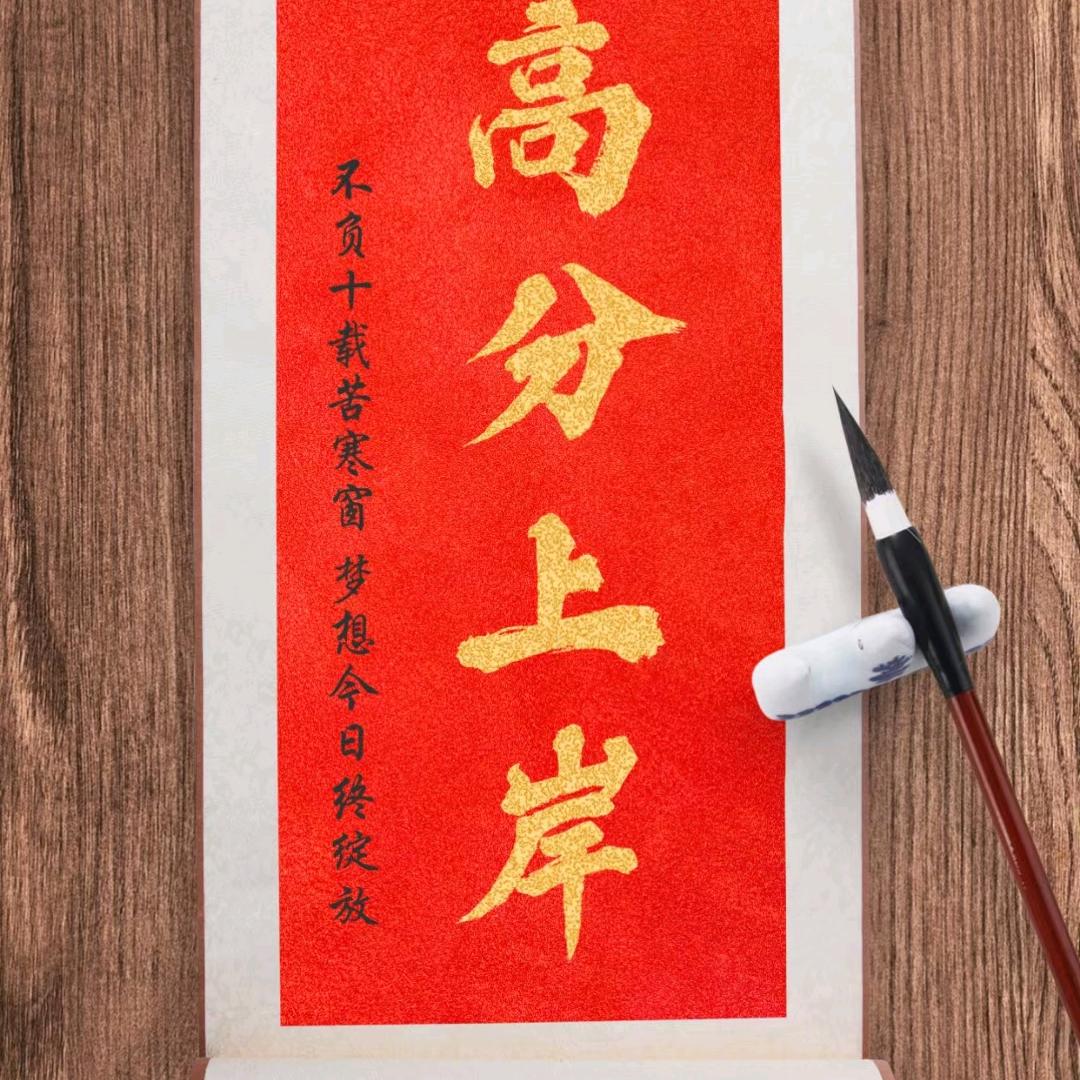 高分上岸
不负十载苦寒窗 梦想今日终绽放